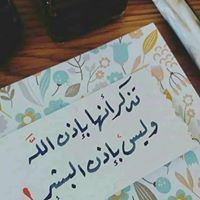 تذكر انها بإذن اللَّه
وليس بإذن البشر!